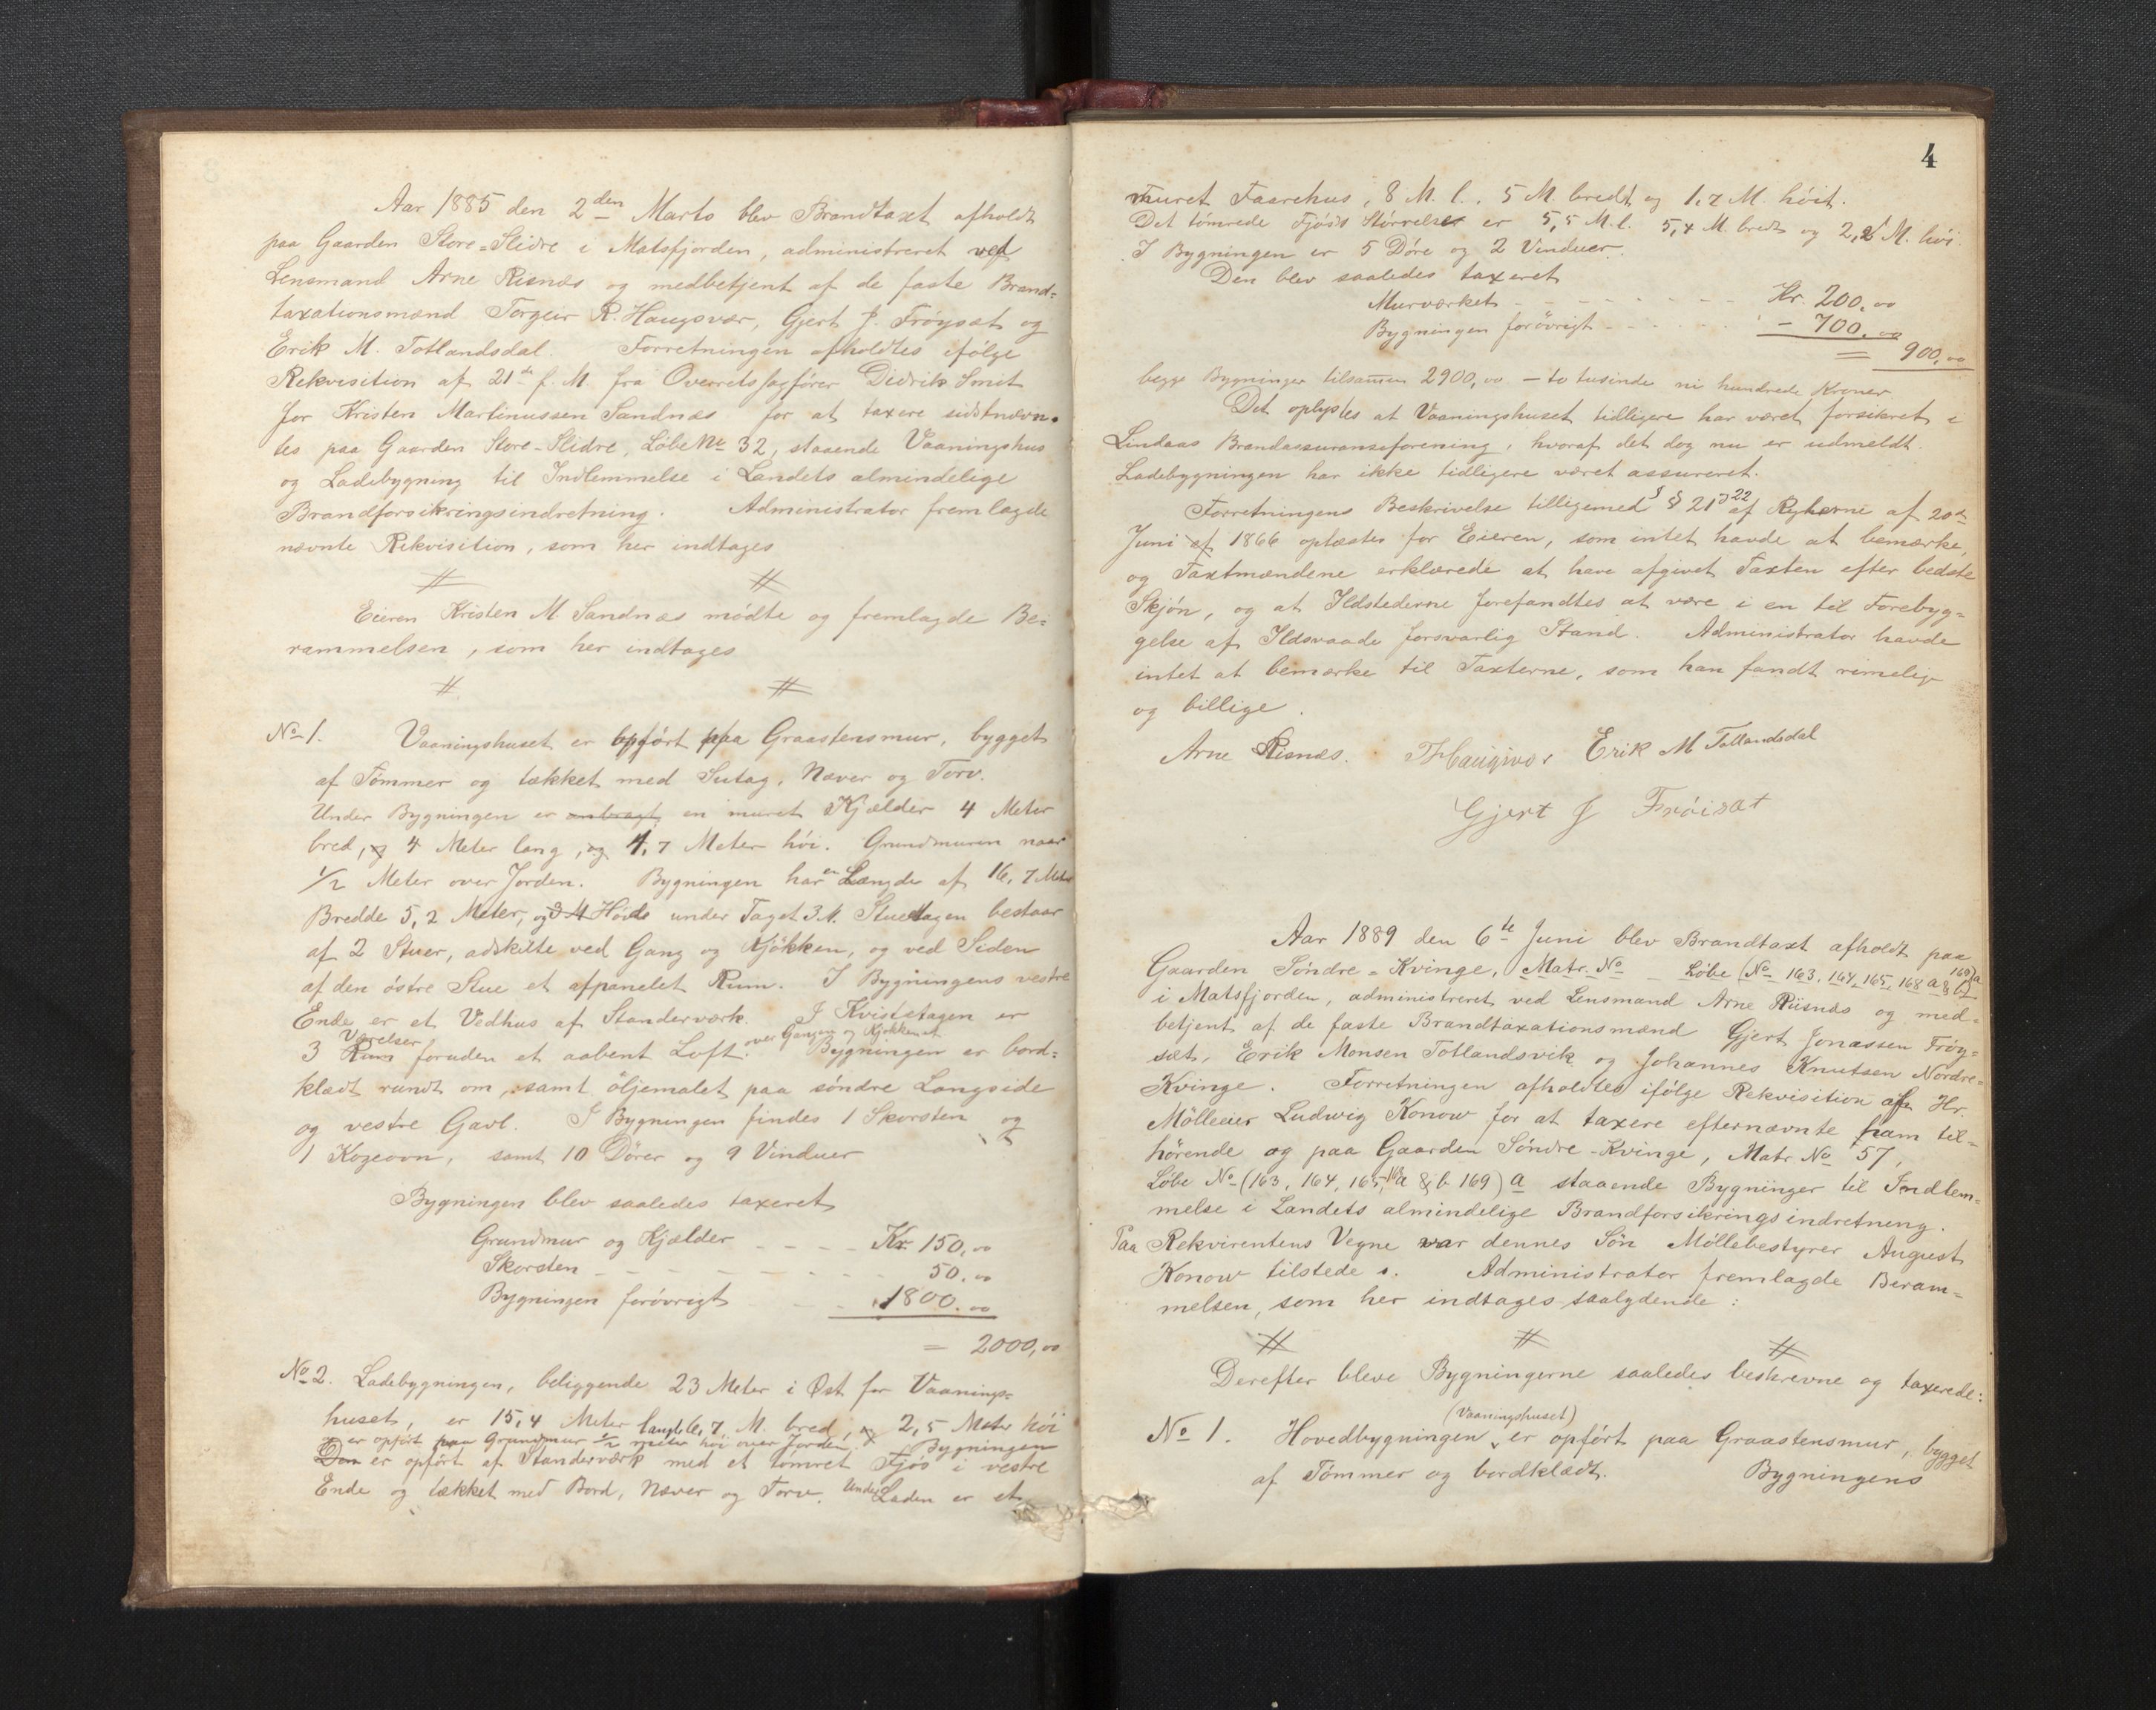 Aar 1885 den 2den Marts blev Brandtaxt afholdt
paa Gaarden Store=Slidre i Matsfjorden, administreret ved
Lensmand Arne Risnæs og medbetjent af de faste Brand=
taxationsmænd Torgeir R. Haugsvær, Gjert J. Fröysæt og
Erik M. Totlandsdal. Forretningen afholdtes ifölge
Rekvisition af 21de f. M. fra Overretssagförer Didrik Smit
for Kristen Martinussen Sandnæs for at taxere sidstnævn=
tes paa Gaarden Store-Slidre, Löbe No 32, staaende Vaaningshus
og Ladebygning til Indlemmelse i Landets almindelige
Brandforsikringsindretning. Administrator fremlagde
nævnte Rekvisition, som her indtages
# #
Eieren Kristen M Sandnæs mödte og fremlagde Be=
rammelsen, som her indtages
# #
No 1. Vaaningshuset er opfört paa Graastensmur, bygget
af Tömmer og tækket med Sutag, Næver og Torv.
Under Bygningen er anbragt en muret Kjælder 4 Meter
bred, og 4 Meter lang, og 1,7 Meter höi. Grundmuren naar
1/2 Meter over Jorden. Bygningen har en Længde af 16,7 Meter
Bredde 5,2 Meter, og Höide under Taget 3 M. Stueetagen bestaar
af 2 Stuer, adskilte ved Gang og Kjökken, og ved Siden
af den östre Stue et afpanelet Rum. I Bygningens vestre
Ende er et Vedhus af Standerværk. I Kvistetagen er
Værelser over Gangen og Kjökkenet
3 Rum foruden et aabent Loft. Bygningen er bord=
klædt rundt om, samt öljemalet paa söndre Langside
og vestre Gavl. I Bygningen findes 1 Skorsten og
1 Kogeovn, samt 10 Dörer og 9 Vinduer
Bygningen blev saaledes taxeret
Grundmur og Kjælder - - - - Kr. 150,00
Skorsten - - - - - - - - 50.00
Bygningen forövrigt - 1800.00
= 2000,00
No 2. Ladebygningen, beliggende 23 Meter i Øst for Vaanings=
huset, er 15,4 Meter lang, 6,7 M. bred, og 2,5 Meter höi
og er opfört paa Grundmur 1/2 meter höi over Jorden. Bygningen
Den er opfört af Standerværk med et tömret Fjös i vestre
Ende og tækket med Bord, Næver og Torv. Under Laden er et
4
muret Faarehus, 8 M. l., 5 M. bredt og 1,7 M. höit.
Det tömrede Fjöss Störrelse er 5,5 M. l. 5,4 M. bredt og 2,2 M. höi.
I Bygningen er 5 Döre og 2 Vinduer.
Den blev saaledes taxeret
Murværket - - - - - - - Kr. 200,00
Bygningen forövrigt - - - - - 700.00
= 900,00
begge Bygninger tilsammen 2900,00 - to tusinde ni hundrede Kroner
Det oplystes at Vaaningshuset tidligere har været forsikret i
Lindaas Brandassuranseforening, hvoraf det dog nu er udmeldt.
Ladebygningen har ikke tidligere været assureret.
Forretningens Beskrivelse tilligemed § § 21 & 22 af Reglerne af 20de
Juni af 1866 oplæstes for Eieren, som intet havde at bemærke,
og Taxtmændene erklærede at have afgivet Taxten efter bedste
Skjön, og at Ildstederne forefandtes at være i en til Forebyg=
gelse af Ildsvaade forsvarlig Stand. Administrator havde
intet at bemærke til Taxterne, som han fandt rimelig
og billige.
Arne Risnæs. THaugsvær Erik M Totlandsdal
Gjert J Fröisæt
Aar 1889 den 6te Juni blev Brandtaxt afholdt paa
Gaarden Söndre=Kvinge, Matr. No - Löbe (No 163, 164, 165, 168 a & b 169) a
i Matsfjorden, administreret ved Lensmand Arne Riisnæs og med=
betjent af de faste Brandtaxationsmænd Gjert Jonassen Fröy=
sæt, Erik Monsen Totlandsvik og Johannes Knutsen Nordre=
Kvinge. Forretningen afholdtes ifölge Rekvisition af Hr.
Mölleeier Ludwig Konow for at taxere efternævnte ham til=
hörende og paa Gaarden Söndre-Kvinge, Matr. No 57,
Löbe No (163, 164, 165, 168 a & b 169) a staaende Bygninger til Indlem=
melse i Landets almindelige Brandforsikringsindretning.
Paa Rekvirentens Vegne var dennes Sön Möllebestyrer August
Konow tilstede. Administrator fremlagde Beram=
melsen, som her indtages saalydende:
# # #
Derefter bleve Bygningerne saaledes beskrevne og taxerede:
(Vaaningshuset)
No 1. Hovedbygningen er opfört paa Graastensmur, bygget
af Tömmer og bordklædt. Bygningens